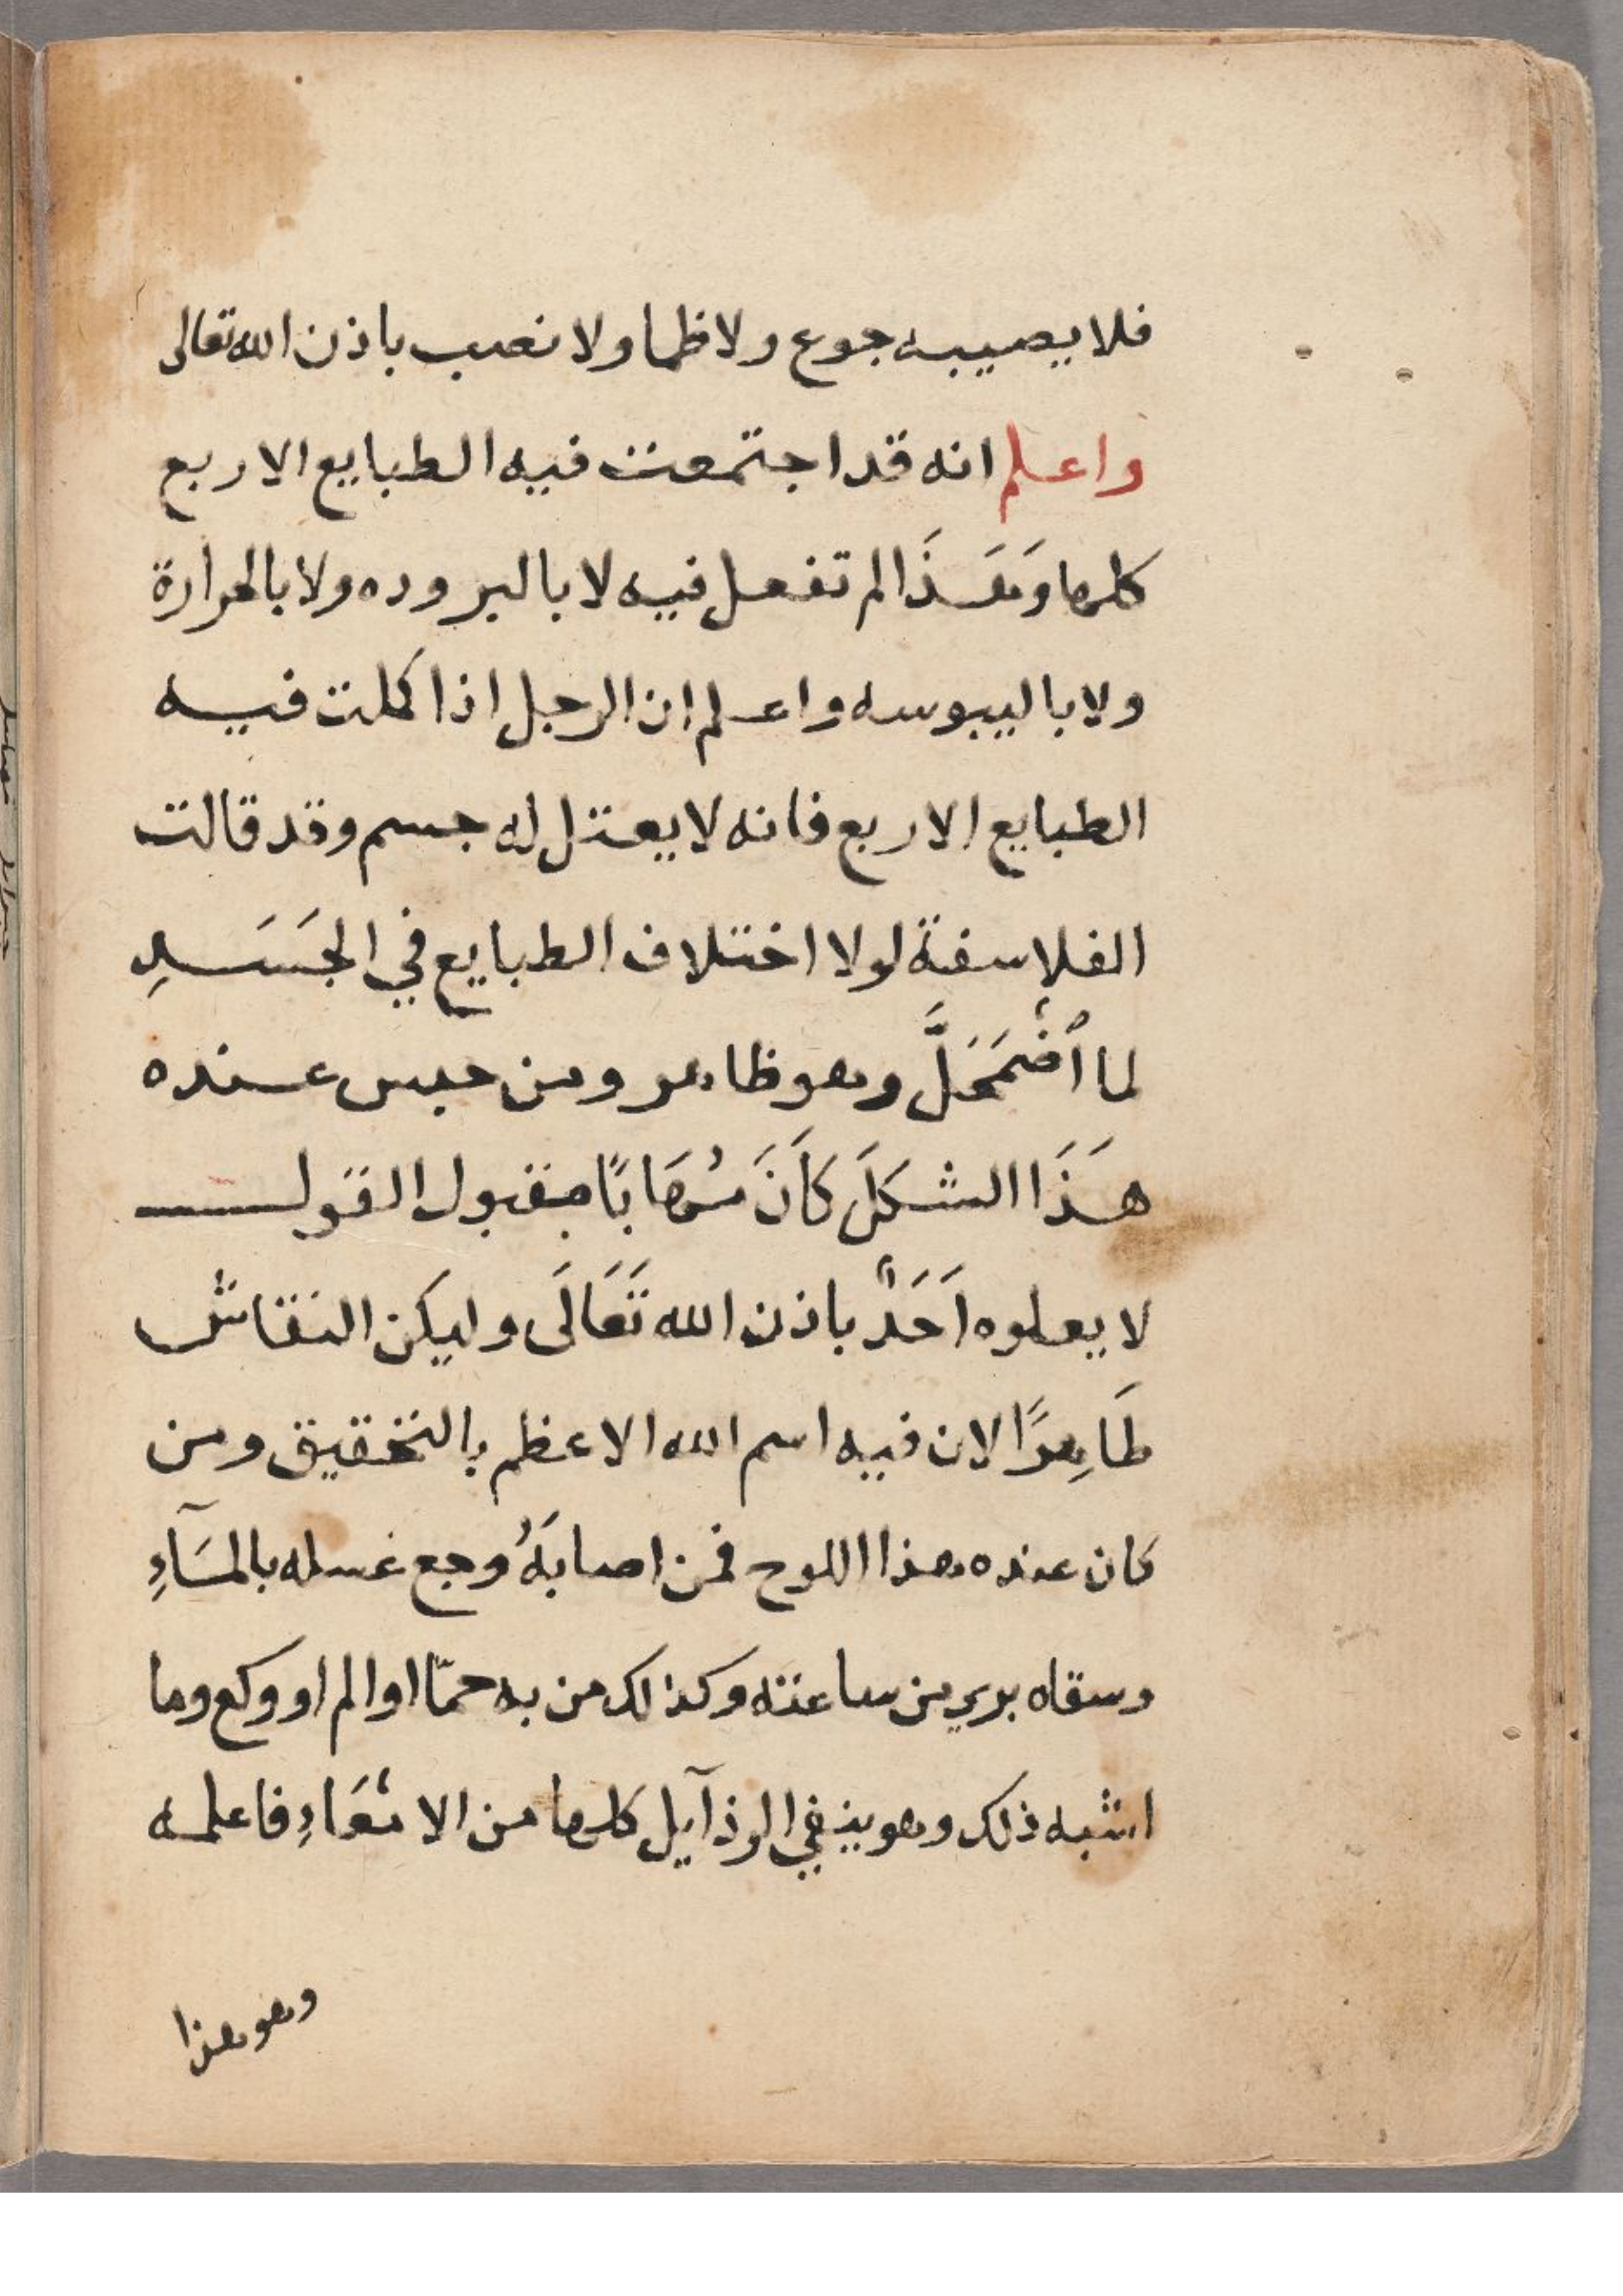 فلا يصيبه جوع ولا ظما ولا نصب باذن الله تعالى
واعلم انه قد اجتمعت فيه الطبايع الاربع
كلها وَهَـذَا لم تفعل فيه لا بالبروده ولا بالحرارة
ولا باليبوسه واعلم ان الرجل اذا كملت فيه
الطبايع الاربع فانه لا يعتل له جسم وقد قالت
الفلاسفة لولا اختلاف الطبايع في الجَسَدِ
لما اُضْمَحَلَّ وهو ظاهر ومن حبس عنده
هَذَا الشكلَ كَانَ مُهَابًا مقبول القول
لا يعلوه اَحَدٌ باذن الله تَعَالَى وليكن النقاش
طَاهِرًا لان فيه اسم الله الاعظم بالتحقيق ومن
كان عنده هذا اللوح فمن اصابَهُ وجع غسله بالمَآءِ
وسقاه بري من ساعته وكذلك من به حمّا او الم او وكع وما
اشبه ذلك وهو ينفي الرذآيل كلها من الامْعَاءِ فاعلمه
وهو هذا